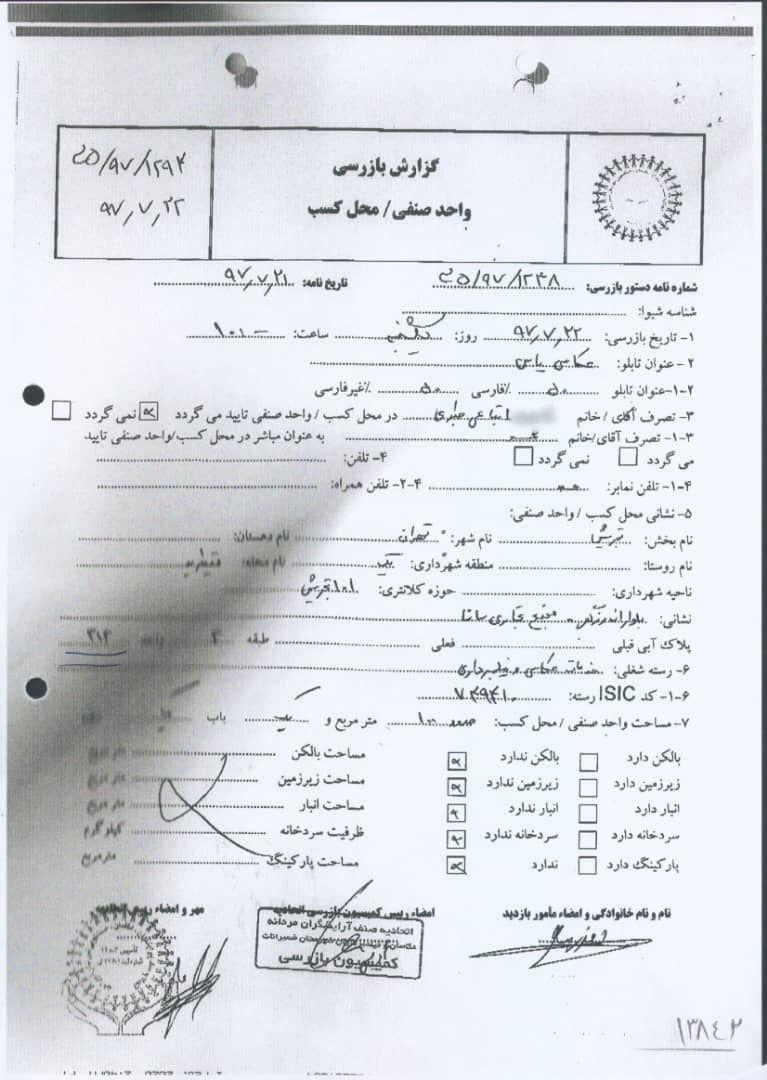 گزارش بازرسی
واحد صنفی / محل کسب
۲۵/۹۷/۱۲۹۴
۹۷,۷,۲۲
شماره نامه دستور بازرسی: ۲۵/۹۷/۱۲۳۸ تاریخ نامه: ۹۷,۷,۲۱
شناسه شیوا:
۱- تاریخ بازرسی: ۹۷,۷,۲۲ روز: یکشنبه ساعت:
۲- عنوان تابلو: عکاسی یاس
۲-۱-عنوان تابلو ۵۰ ٪فارسی ۵۰ ٪غیرفارسی
۳- تصرف آقای / خانم در محل کسب / واحد صنفی تایید می گردد نمی گردد
۳-۱- تصرف آقای/خانم به عنوان مباشر در محل کسب/واحد صنفی تایید
می گردد نمی گردد ۴- تلفن:
۴-۱- تلفن نمابر: ۴-۲- تلفن همراه:
۵- نشانی محل کسب / واحد صنفی:
نام بخش: نام شهر: تهران نام دهستان:
نام روستا: منطقه شهرداری: یک نام محله: قیطریه
ناحیه شهرداری: حوزه کلانتری: ۱۰۱ تجریش
نشانی: مجتمع تجاری سانا
پلاک آبی قبلی فعلی طبقه ۳ واحد ۳۱۲
۶- رسته شغلی: خدمات عکاسی و فیلمبرداری
۶-۱- کد ISIC رسته: ۷۴۹۴۱۰
۷- مساحت واحد صنفی / محل کسب: حدود ۱۰۰ متر مربع و یک باب
بالکن دارد بالکن ندارد مساحت بالکن متر مربع
زیرزمین دارد زیرزمین ندارد مساحت زیرزمین متر مربع
انبار دارد انبار ندارد مساحت انبار متر مربع
سردخانه دارد سردخانه ندارد ظرفیت سردخانه کیلوگرم
پارکینگ دارد ندارد مساحت پارکینگ مترمربع
نام و نام خانوادگی و امضاء مأمور بازدید امضاء رییس کمیسیون بازرسی اتحادیه مهر و امضاء رییس اتحادیه
اتحادیه صنف آرایشگران مردانه
شهرستان شمیرانات
کمیسیون بازرسی
۱۳۸۴۲